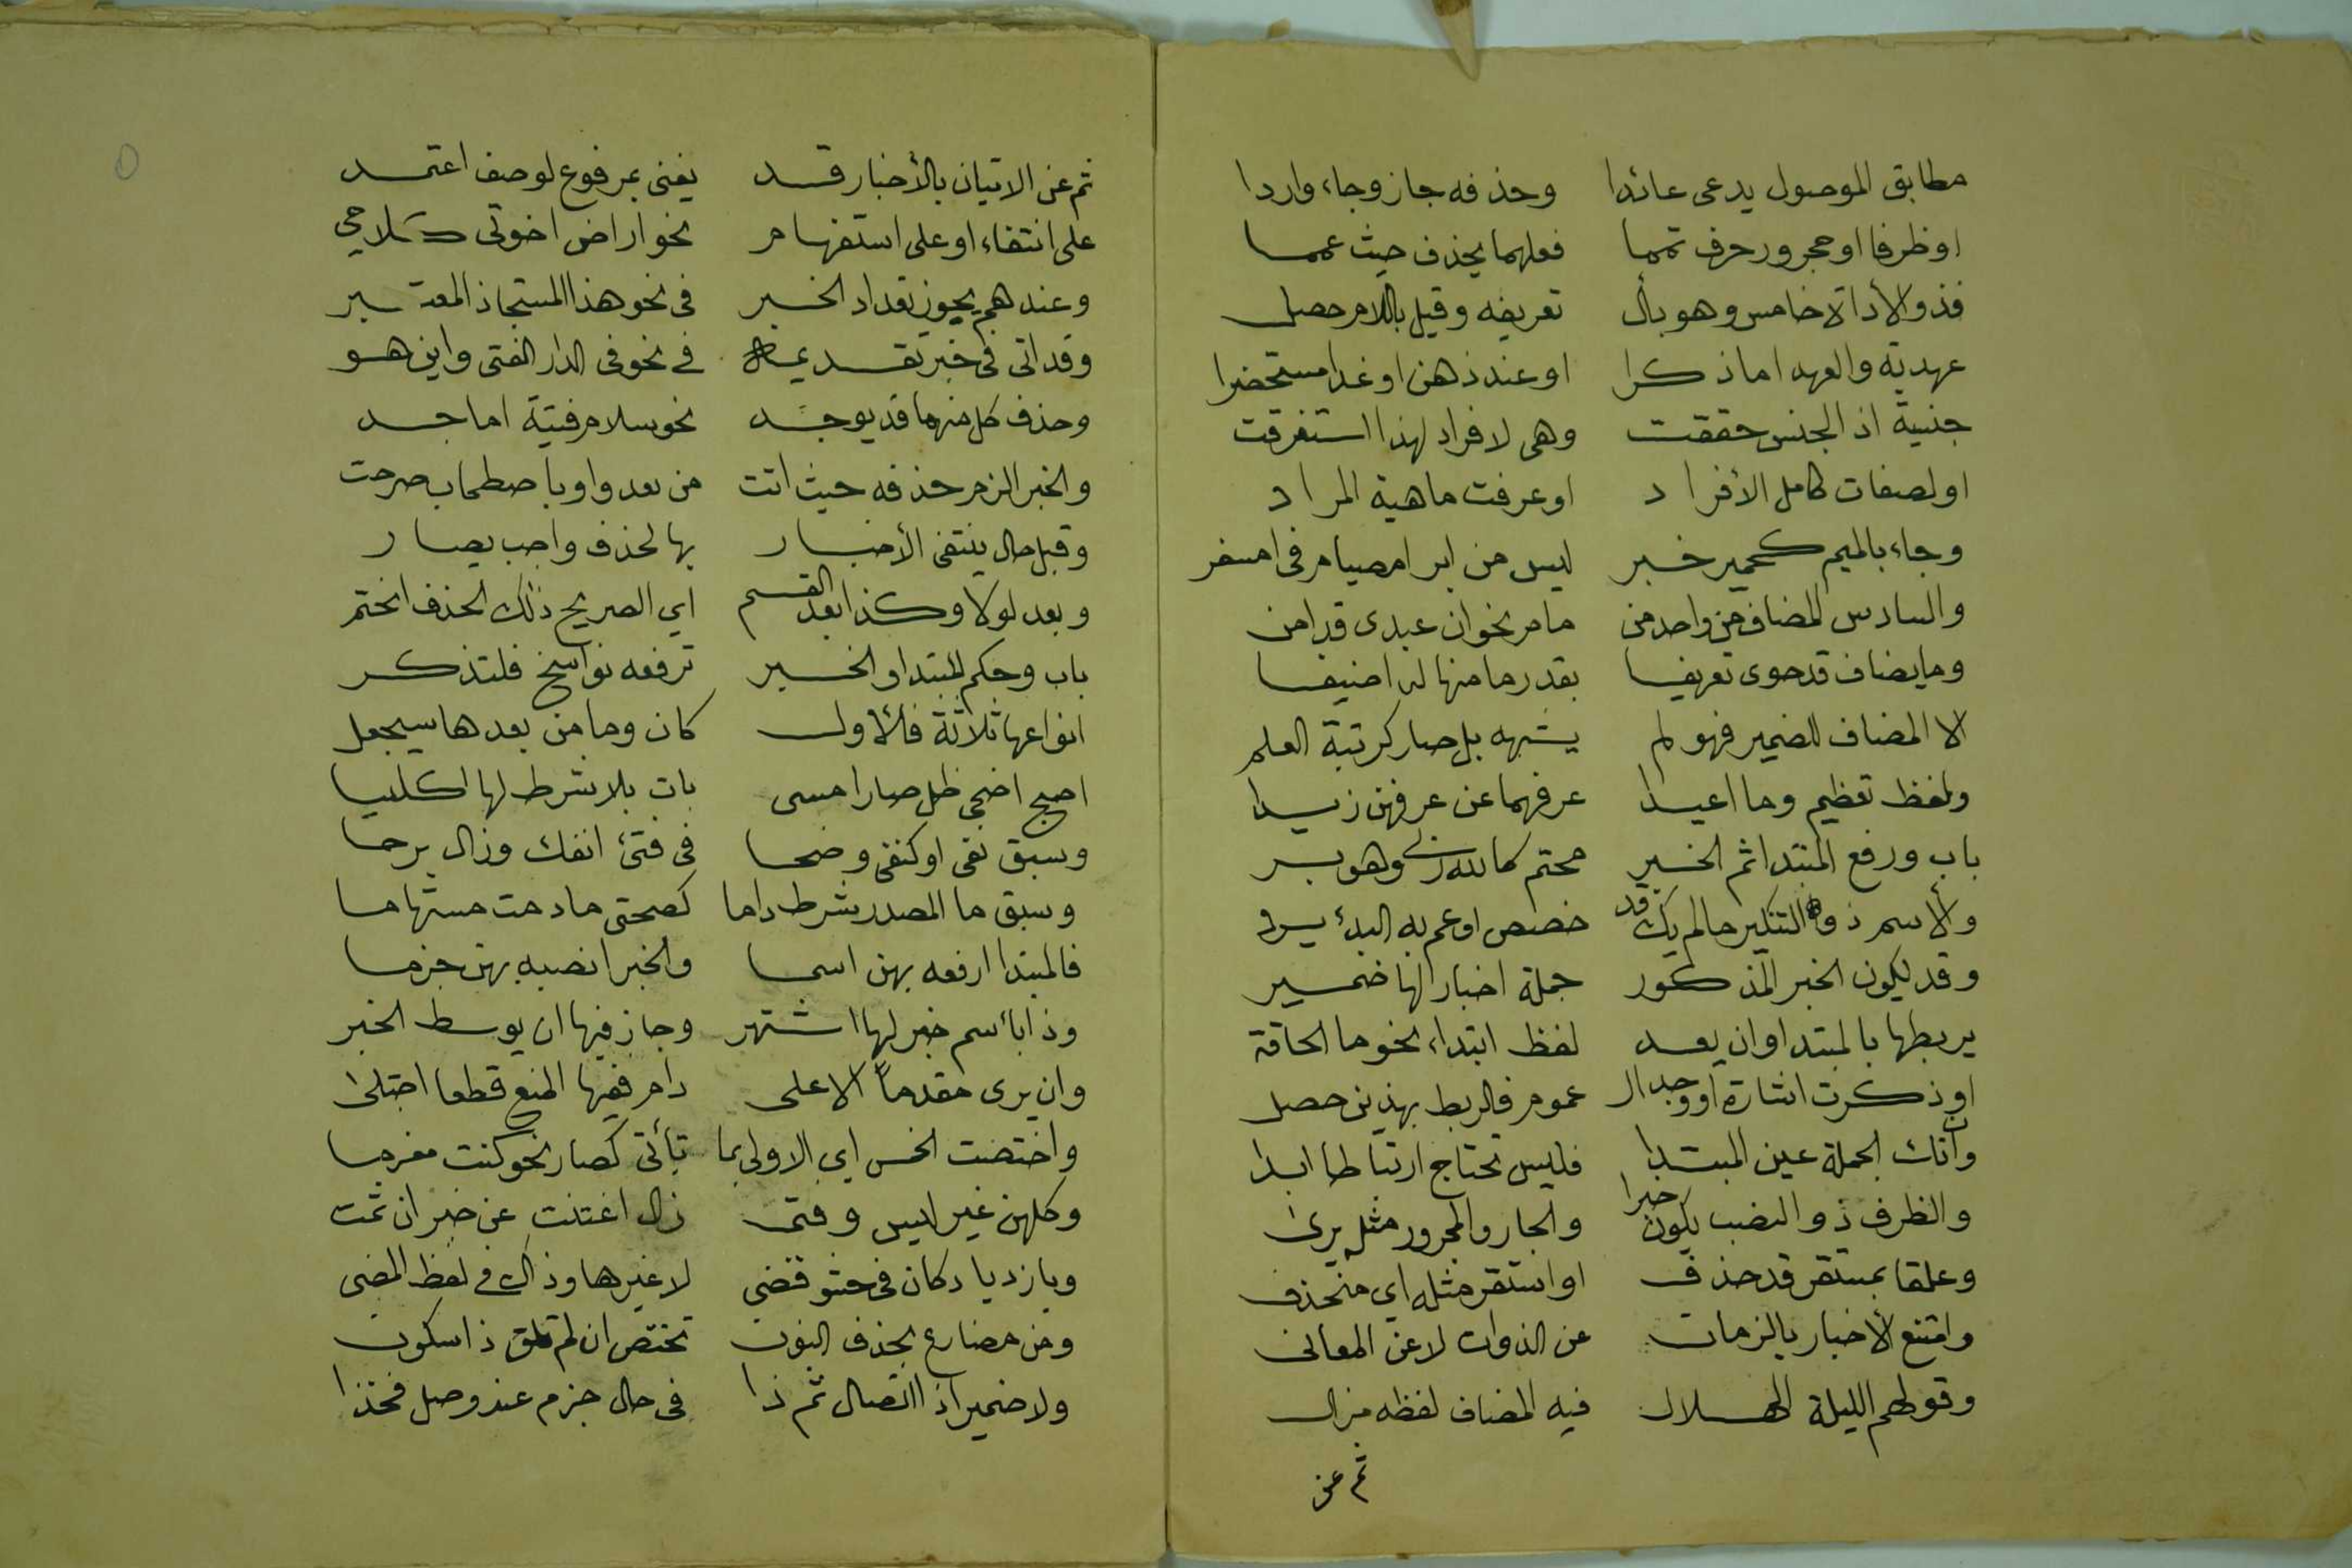 مطابق الموصول يدعى عائدا وحذفه جاز وجاء واردا
او ظرفا او مجرور حرف تمما فعلهما يحذف حيث عمما
فذو الأداة خامس وهو بأل تعريفه وقيل باللام حصل
عهدية والعهد اما ذكرا او عند ذهن او غدا مستحضرا
جنسية اذ الجنس حققت وهى لافراد لهذا استغرقت
او لصفات كامل الأفراد او عرفت ماهية المراد
وجاء بالميم كحمير خبر ليس من ابر امصيام فى امسفر
والسادس المضاف من واحد من ما مر نحو ان عبدى قد امن
وما يضاف قد حوى تعريفا بقدر ما منها له اضيفا
الا المضاف للضمير فهو لم يشبهه بل صار كرتبة العلم
ولفظ تعظيم وما اعيدا عرفهما عن عرفهن زيدا
باب ورفع المبتدا ثم الخبر محتم كالله ربى وهو بر
والاسم ذو التنكير ما لم يك قد خصص او عم به البدأ يرد
وقد يكون الخبر المذكور جملة اخبار لها ضمير
يربطها بالمبتدا وان يعد لفظ ابتداء نحو ما الحاقة
او ذكرت اشارة او وجد ال عموم فالربط بهذين حصل
وان تك الجملة عين المبتدا فليس تحتاج ارتباطا ابدا
والظرف ذو النصب يكون خبرا والجار والمجرور مثل يرى
وعلقا بمستقر قد حذف او استقر مثله اى منحذف
وامتنع الأخبار بالزمان عن الذوات لا عن المعانى
وقولهم الليلة الهلال فيه المضاف لفظه مزال
ثم عن
ثم عن الاتيان بالأخبار قد يغنى بمرفوع لوصف اعتمد
على انتفاء او على استفهام نحو اراض اخوتى كلامى
وعندهم يجوز تعداد الخبر فى نحو هذا المستجاذ المعتبر
وقد اتى فى خبر تقديمه فى نحو فى الدار الفتى واين هو
وحذف كل منهما قد يوجد نحو سلام فتية اماجد
والخبر الزم حذفه حيث اتت من بعد واو باصطحاب صرحت
وقبل حال ينتفى الأخبار بها لحذف واجب يصار
وبعد لولا وكذا بعد القسم اي الصريح ذلك الحذف انحتم
باب وحكم المبتدا والخبر ترفعه نواسخ فلتذكر
انواعها ثلاثة فالأول كان وما من بعدها سيجعل
اصبح اضحى ظل صار امسى بات بلا شرط لها كليسا
وسبق نفى او كنفى وضحا فى فتئ انفك وزال برحا
وسبق ما المصدر شرط داما كصحتى ما دمت مستهاما
فالمبتدا ارفعه بهن اسما والخبر انصبه بهن جزما
وذا بأسم خبر لها اشتهر وجاز فيها ان يوسط الخبر
وان يرى مقدماً الا على دام ففيها المنع قطعا اجتلى
واختصت الخمس اي الاولى بما تأتى كصار نحو كنت مغرما
وكلهن غير ليس وفتى زال اغتنت عن خبر ان تمت
وبازدياد كان فى حشو قضى لا غيرها وذاك فى لفظ المضى
ومن مضارع بحذف النون تختص ان لم تلق ذا سكون
ولا ضمير اذا اتصال ثم ذا فى حال جزم عند وصل فخذا